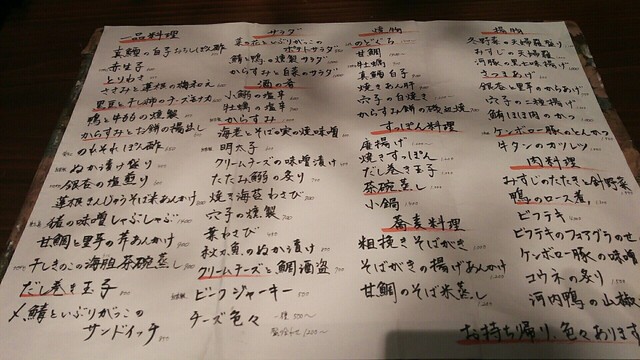 一品料理
真鯛の白子おろしぽん酢
赤生子
とりわさ
ささみと蓮根の梅和え
黒豆と干し柿のチーズキナカ
鴨と牛タンの燻製
からすみとお餅の揚出し
のれそれぽん酢
ぬか漬け盛り
銀杏の塩煎り
蓮根まんじゅうそば米あんかけ
猪の味噌しゃぶしゃぶ
甘鯛と里芋の芹あんかけ
干しきのこの海胆茶碗蒸し
だし巻き玉子
〆鯖といぶりがっこの
サンドイッチ
サラダ
菜の花といぶりがっこの
ポテトサラダ
鯖と鴨の燻製サラダ
からすみと白菜のサラダ
酒の肴
小鯛の塩辛
牡蠣の塩辛
からすみ
海老とそばの実の焼味噌
明太子
クリームチーズの味噌漬け
たたみ鰯の炙り
焼き海苔わさび
穴子の燻製
葉わさび
秋刀魚のぬか漬け
クリームチーズと鯛酒盗
ビーフジャーキー
チーズ色々
一種 350〜
盛合わせ 1,200〜
焼物
のどぐろ
甘鯛
牡蠣
真鯛白子
焼きあん肝
穴子の白焼き
からすみ餅の磯辺焼
すっぽん料理
唐揚げ
焼きすっぽん
だし巻き玉子
茶碗蒸し
小鍋
蕎麦料理
粗挽きそばがき
そばがきの揚げあんかけ
甘鯛のそば米蒸し
揚物
冬野菜の天婦羅盛り
みすじの天婦羅
河豚の黒七味揚げ
さつまあげ
銀杏と里芋のからあげ
穴子の二種揚げ
鮪ほほ肉のかつ
ケンボロー豚のとんかつ
牛タンのカツレツ
肉料理
みすじのたたきと針野菜
鴨のロース煮
ビフテキ
ビフテキのフォアグラのせ
ケンボロー豚の味噌
コウネの炙り
河内鴨の山椒
お持ち帰り、色々あります